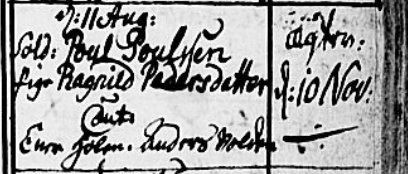 d: 11 Aug:
Sold: Poul Poulsen
pige Ragnild Pedersdatter
Caut:
Even Holm. Anders Holden
d: 10 Nov: